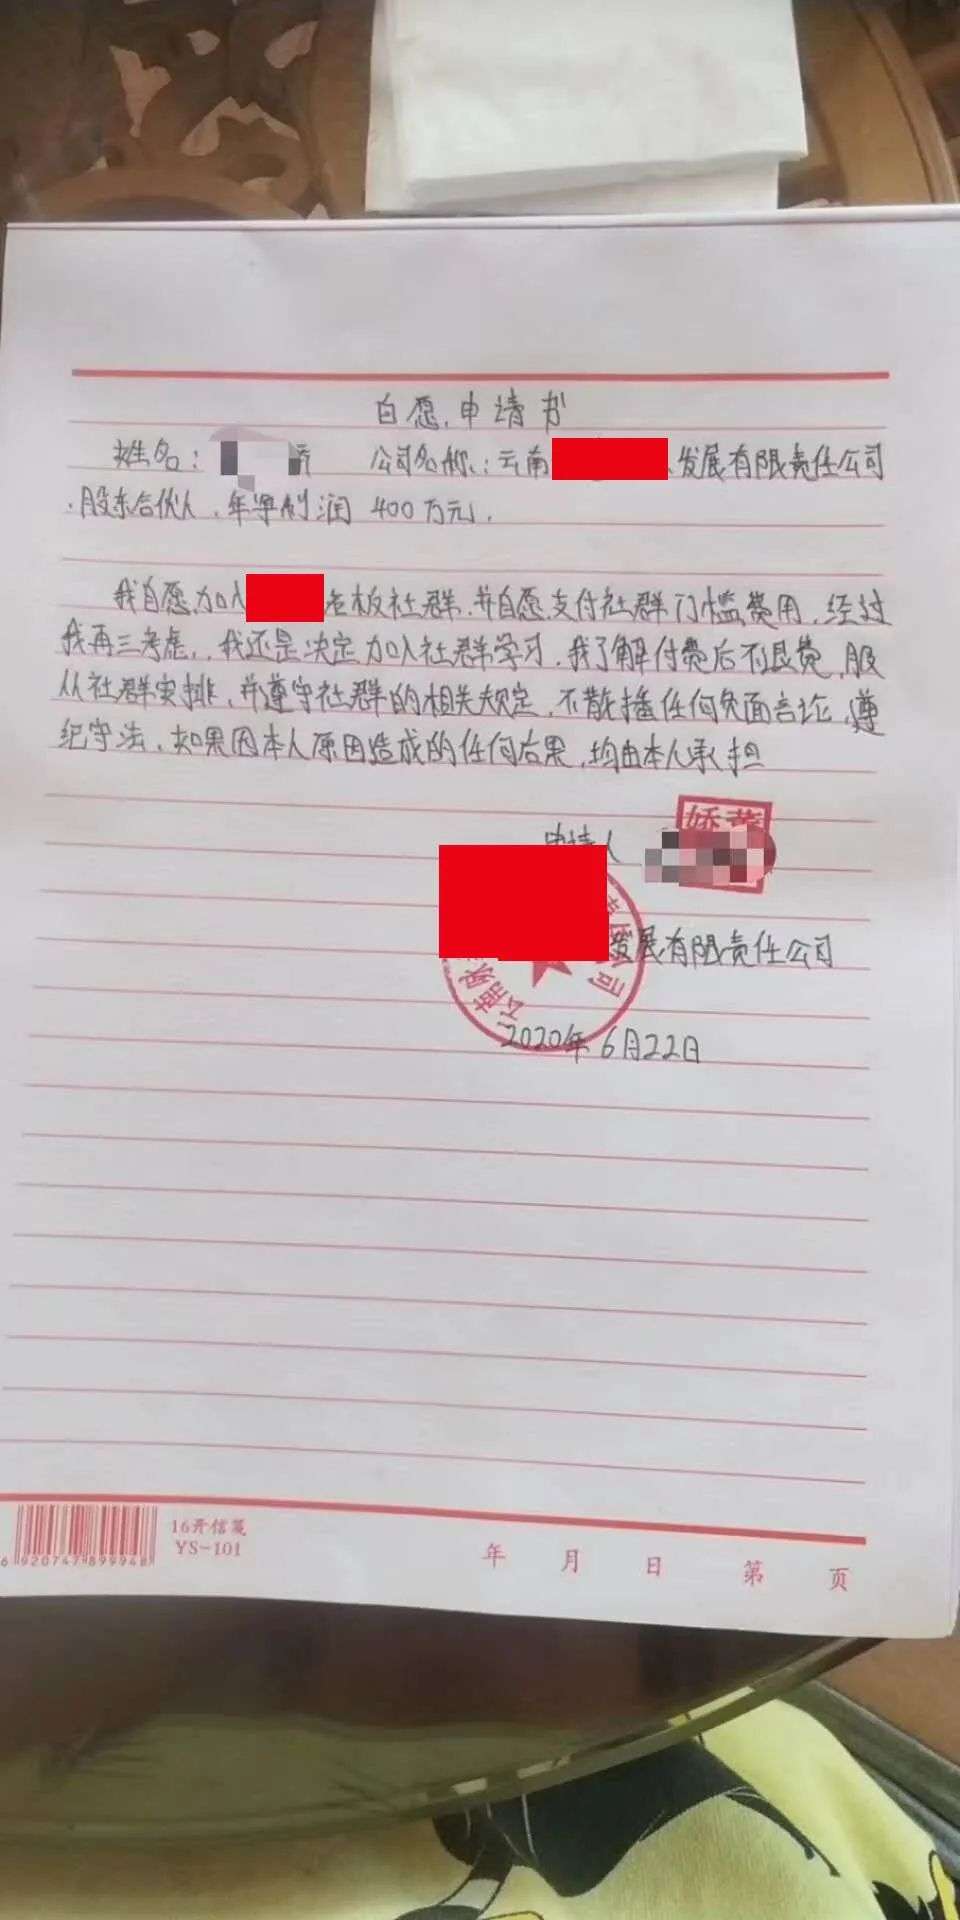 自愿申请书
姓名： 乔 公司名称：云南 发展有限责任公司
股东合伙人，年净利润 400万元。
我自愿加入 老板社群，并自愿支付社群门槛费用，经过
我再三考虑，我还是决定加入社群学习，我了解付费后不退费，服
从社群安排，并遵守社群的相关规定，不散播任何负面言论，遵
纪守法，如果因本人原因造成的任何后果，均由本人承担
申请人
发展有限责任公司
2020年6月22日
6920747899948
16开信笺
YS-101
年 月 日 第 页